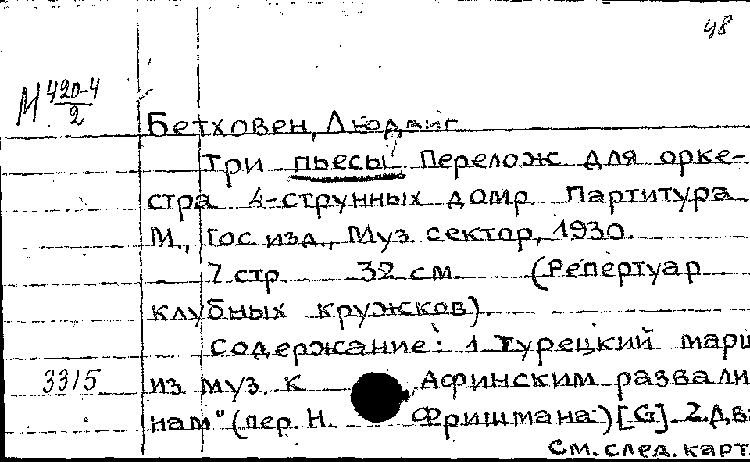 48
М 420-4
2
Бетховен, Людвиг
Три пьесы. Перелож для орке-
стра 4-струнных домр Партитура
М., Гос изд., Муз сектор, 1930.
7 стр 32 см. (Репертуар
клубных кружков).
Содержание: 1 Турецкий марш
3315 из муз. к „Афинским развали
нам" (пер. Н. Фришмана) [G]. 2. Два
См. след. карт